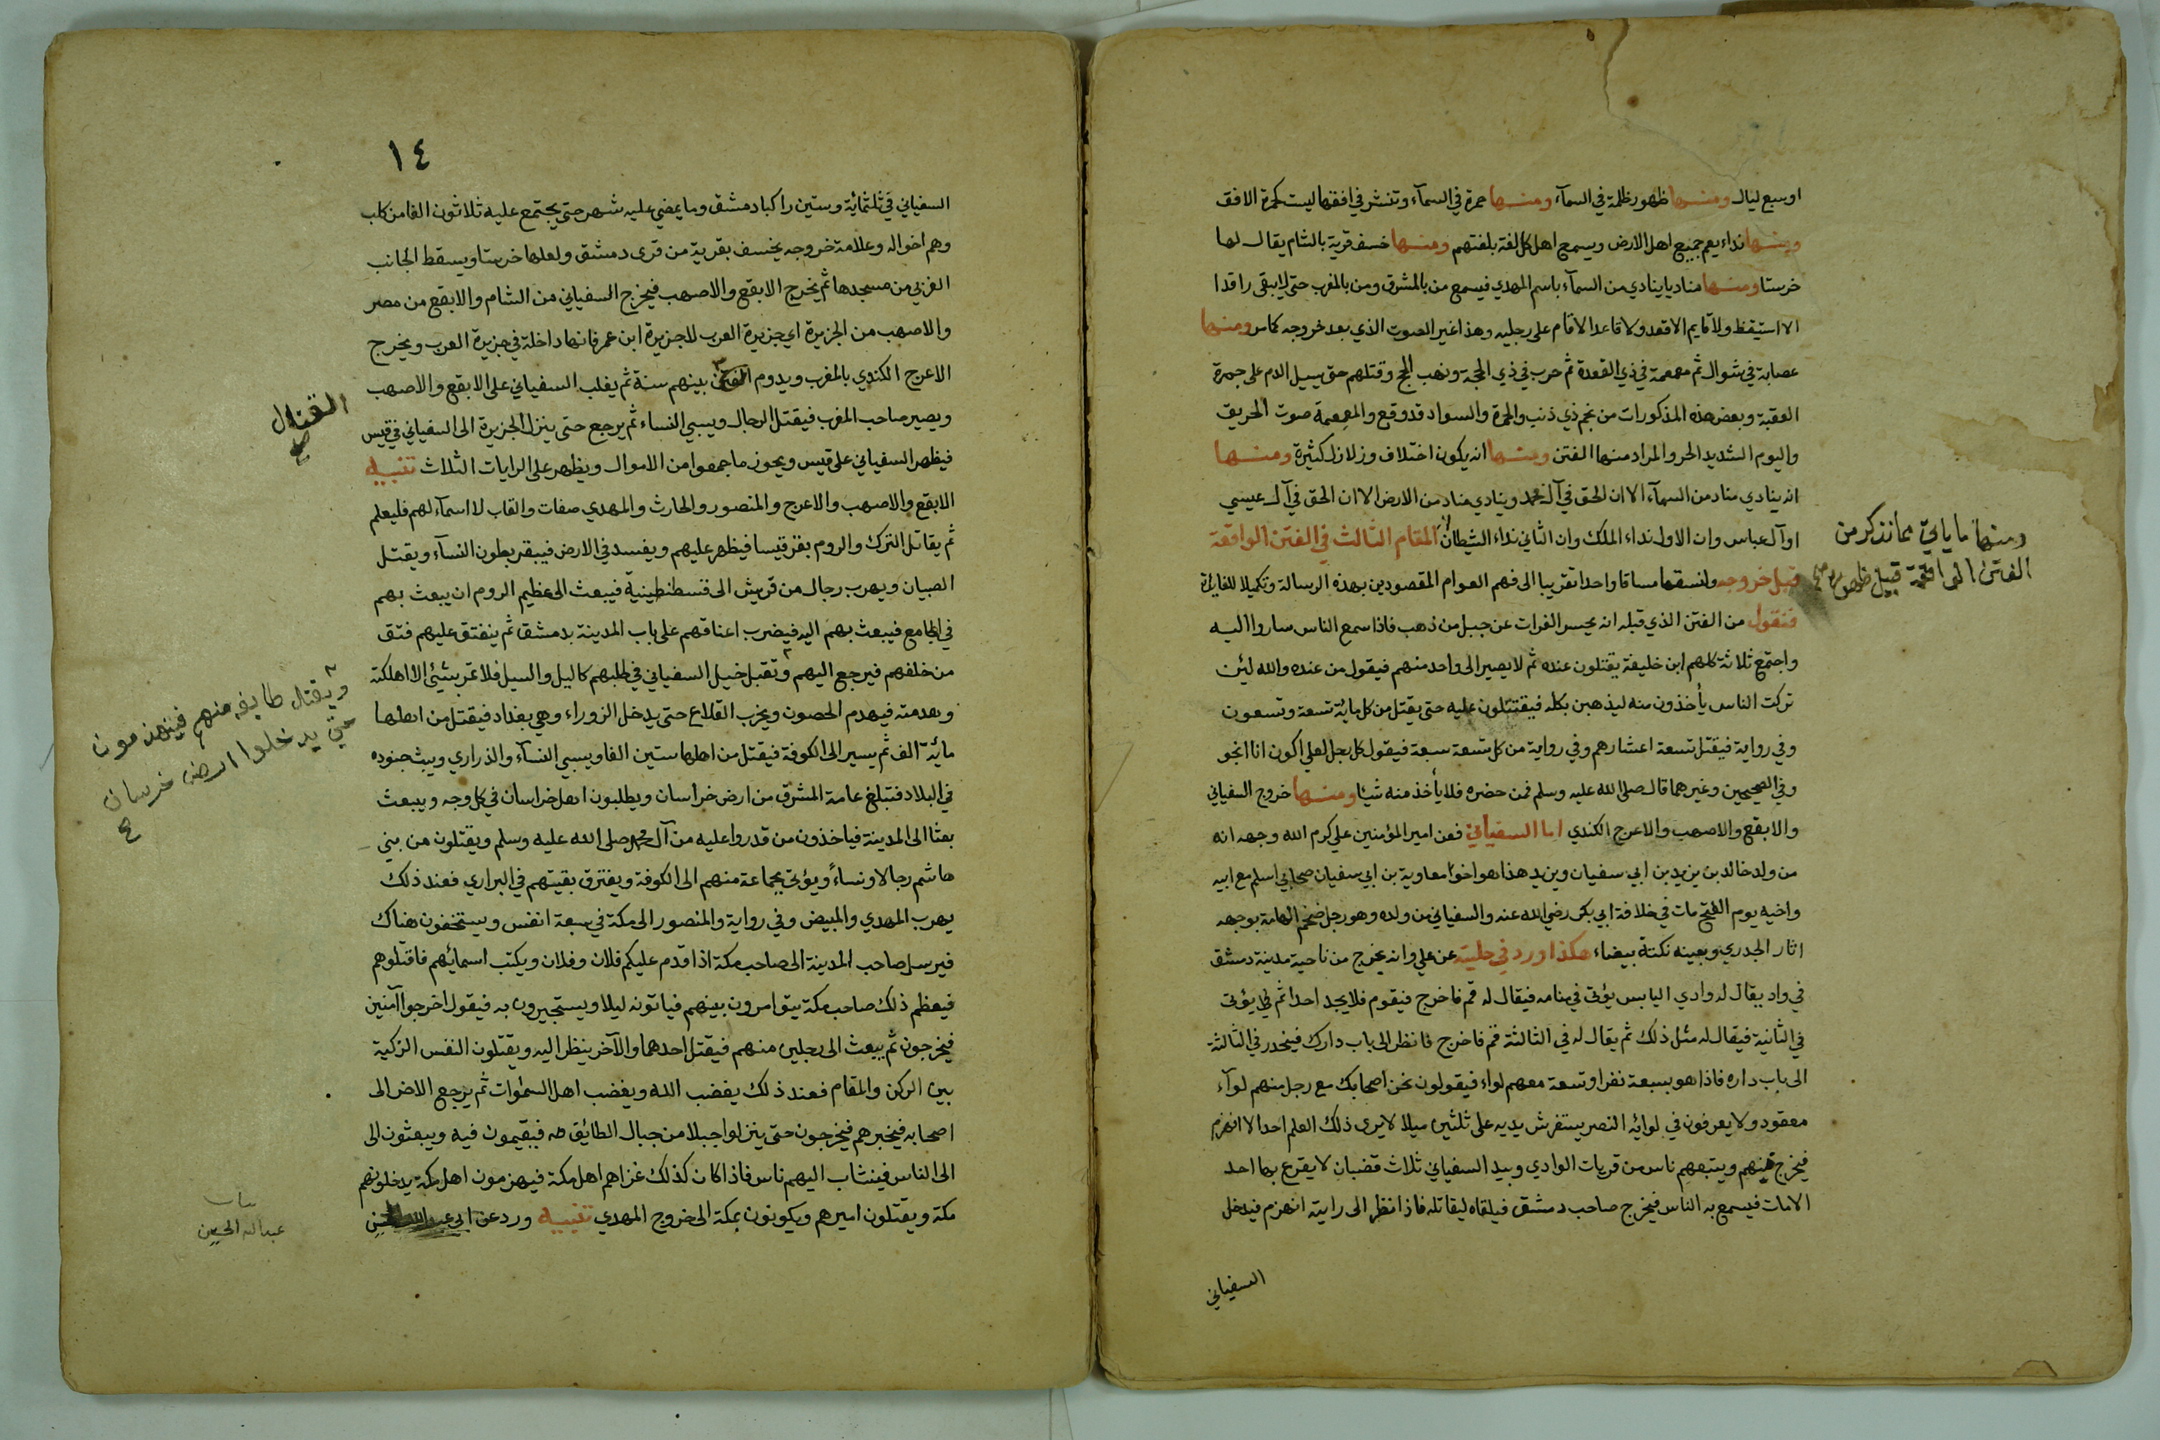 او سبع ليال ومنها ظهور ظلمة في السمآء ومنها حمرة في السمآء وتنشر في افقها ليست كحمرة الافق
ومنها نداء يعم جميع اهل الارض ويسمع اهل كل لغة بلغتهم ومنها خسف قرية بالشام يقال لها
خرستا ومنها مناديا ينادي من السمآء باسم المهدي فيسمع من بالمشرق ومن بالمغرب حتى لا يبقى راقدا
الا استيقظ ولا قايم الا قعد ولا قاعد الا قام على رجليه وهذا غير الصوت الذي بعد خروجه كما س ومنها
عصابة في شوال ثم معمعة في ذي القعدة ثم حرب في ذي الحجة ونهب الحج وقتلهم حتى يسيل الدم على جمرة
العقبة وبعض هذه المذكورات من نجم ذي ذنب والحمرة والسواد قد وقع والمعمعة صوت الحريق
واليوم الشديد الحر والمراد منها الفتن ومنها انه يكون اختلاف وزلازل كثيرة ومنها
انه ينادي مناد من السمآء الا ان الحق في آل محمد وينادي مناد من الارض الا ان الحق في آل عيسي
او آل عباس وان الاول نداء الملك وان الثاني نداء الشيطان المقام الثالث في الفتن الواقعة
ومنها ما ياتي مما نذكر من
الفتن الواقعة قبيل ظهوره
قبل خروجه ولنسقها مساقا واحدا تقريبا الى فهم العوام المقصودين بهذه الرسالة وتكميلا للفايدة
فنقول من الفتن الذي قبله انه يحسر الفرات عن جبل من ذهب فاذا سمع الناس ساروا اليه
واجتمع ثلاثة كلهم ابن خليفة يقتتلون عنده ثم لا يصير الى واحد منهم فيقول من عنده والله لئن
تركت الناس يأخذون منه ليذهبن بكله فيقتتلون عليه حتى يقتل من كل ماية تسعة وتسعون
وفي رواية فيقتل تسعة اعشارهم وفي رواية من كل تسعة سبعة فيقول كل رجل لعلي اكون انا انجو
وفي الصحيحين وغيرهما قال صلى الله عليه وسلم فمن حضره فلا يأخذ منه شيئا ومنها خروج السفياني
والابقع والاصهب والاعرج الكندي اما السفياني فعن امير المؤمنين علي كرم الله وجهه انه
من ولد خالد بن يزيد بن ابي سفيان ويزيد هذا هو اخو معاوية بن ابي سفيان صحابي اسلم مع ابيه
واخيه يوم الفتح مات في خلافة ابي بكر رضي الله عنه والسفياني من ولده وهو رجل ضخم الهامة بوجهه
اثار الجدري وبعينه نكتة بيضاء هكذا ورد في حليته عن علي وانه يخرج من ناحية مدينة دمشق
في واد يقال له وادي اليابس يؤتى في منامه فيقال له قم فاخرج فيقوم فلا يجد احدا ثم يؤتى
في الثانية فيقال له مثل ذلك ثم يقال له في الثالثة قم فاخرج فانظر الى باب دارك فينحدر في الثالثة
الى باب داره فاذا هو بسبعة نفر او تسعة معهم لواء فيقولون نحن اصحابك مع رجل منهم لوآء
معقود ولا يعرفون في لوائه النصر يستفرش يديه على ثلثين ميلا لا يرى ذلك العلم احد الا انهزم
فيخرج منهم ويتبعهم ناس من قريات الوادي وبيد السفياني ثلاث قضبان لا يقرع بها احد
الا مات فيسمع به الناس فيخرج صاحب دمشق فيلقاه ليقاتله فاذا نظر الى رايته انهزم فيدخل
السفياني
١٤
السفياني في ثلثمائة وستين راكبا دمشق وما يمضي عليه شهر حتى يجتمع عليه ثلاثون الفا من كلب
وهم اخواله وعلامة خروجه يخسف بقرية من قرى دمشق ولعلها خرستا ويسقط الجانب
الغربي من مسجدها ثم يخرج الابقع والاصهب فيخرج السفياني من الشام والابقع من مصر
والاصهب من الجزيرة اي جزيرة العرب لا جزيرة ابن عمر فانها داخلة في جزيرة العرب ويخرج
الاعرج الكندي بالمغرب ويدوم بينهم سنة ثم يغلب السفياني على الابقع والاصهب
القتال
ويصير صاحب المغرب فيقتل الرجال ويسبي النساء ثم يرجع حتى ينزل الجزيرة الى السفياني في قيس
فيظهر السفياني على قيس ويحوز ما جمعوا من الاموال ويظهر على الرايات الثلاث تنبيه
الابقع والاصهب والاعرج والمنصور والحارث والمهدي صفات والقاب لا اسمآء لهم فليعلم
ثم يقاتل الترك والروم بقرقيسا فيظهر عليهم ويفسد في الارض فيبقر بطون النسآء ويقتل
الصبيان ويهرب رجال من قريش الى قسطنطينية فيبعث الى عظيم الروم ان يبعث بهم
في المجامع فيبعث بهم اليه فيضرب اعناقهم على باب المدينة بدمشق ثم ينفتق عليهم فتق
من خلفهم فيرجع اليهم وتقبل خيل السفياني في طلبهم كالليل والسيل فلا تمر بشيئ الا اهلكته
ويقتل طايفة منهم فينهزمون
حتى يدخلوا ارض خرسان
وهدمته فيهدم الحصون ويخرب القلاع حتى يدخل الزوراء وهي بغداد فيقتل من اهلها
مائة الف ثم يسير الى الكوفة فيقتل من اهلها ستين الفا ويسبي النسآء والذراري ويبث جنوده
في البلاد فتبلغ عامة المشرق من ارض خراسان ويطلبون اهل خراسان في كل وجه ويبعث
بعثا الى المدينة فياخذون من قدروا عليه من آل محمد صلى الله عليه وسلم ويقتلون من بني
هاشم رجالا ونساءً ويؤتى بجماعة منهم الى الكوفة ويفترق بقيتهم في البراري فعند ذلك
يهرب المهدي والمبيض وفي رواية والمنصور الى مكة في سبعة انفس ويستخفون هناك
فيرسل صاحب المدينة الى صاحب مكة اذا قدم عليكم فلان وفلان ويكتب اسمائهم فاقتلوهم
فيعظم ذلك صاحب مكة يتوامرون بينهم فياتونه ليلا ويستجيرون به فيقول اخرجوا آمنين
فيخرجون ثم يبعث الى رجلين منهم فيقتل احدهما والآخر ينظر اليه ويقتلون النفس الزكية
بين الركن والمقام فعند ذلك يغضب الله ويغضب اهل السموات ثم يرجع الاخر الى
اصحابه فيخبرهم فيخرجون حتى ينزلوا جبلا من جبال الطائف فيقيمون فيه ويبعثون الى
الى الناس فينشاب اليهم ناس فاذا كان كذلك غزاهم اهل مكة فيهزمون اهل مكة يدخلونهم
مكة ويقتلون اميرهم ويكونون بمكة الى خروج المهدي تنبيه ورد عن ابي
عبد الله الحسين